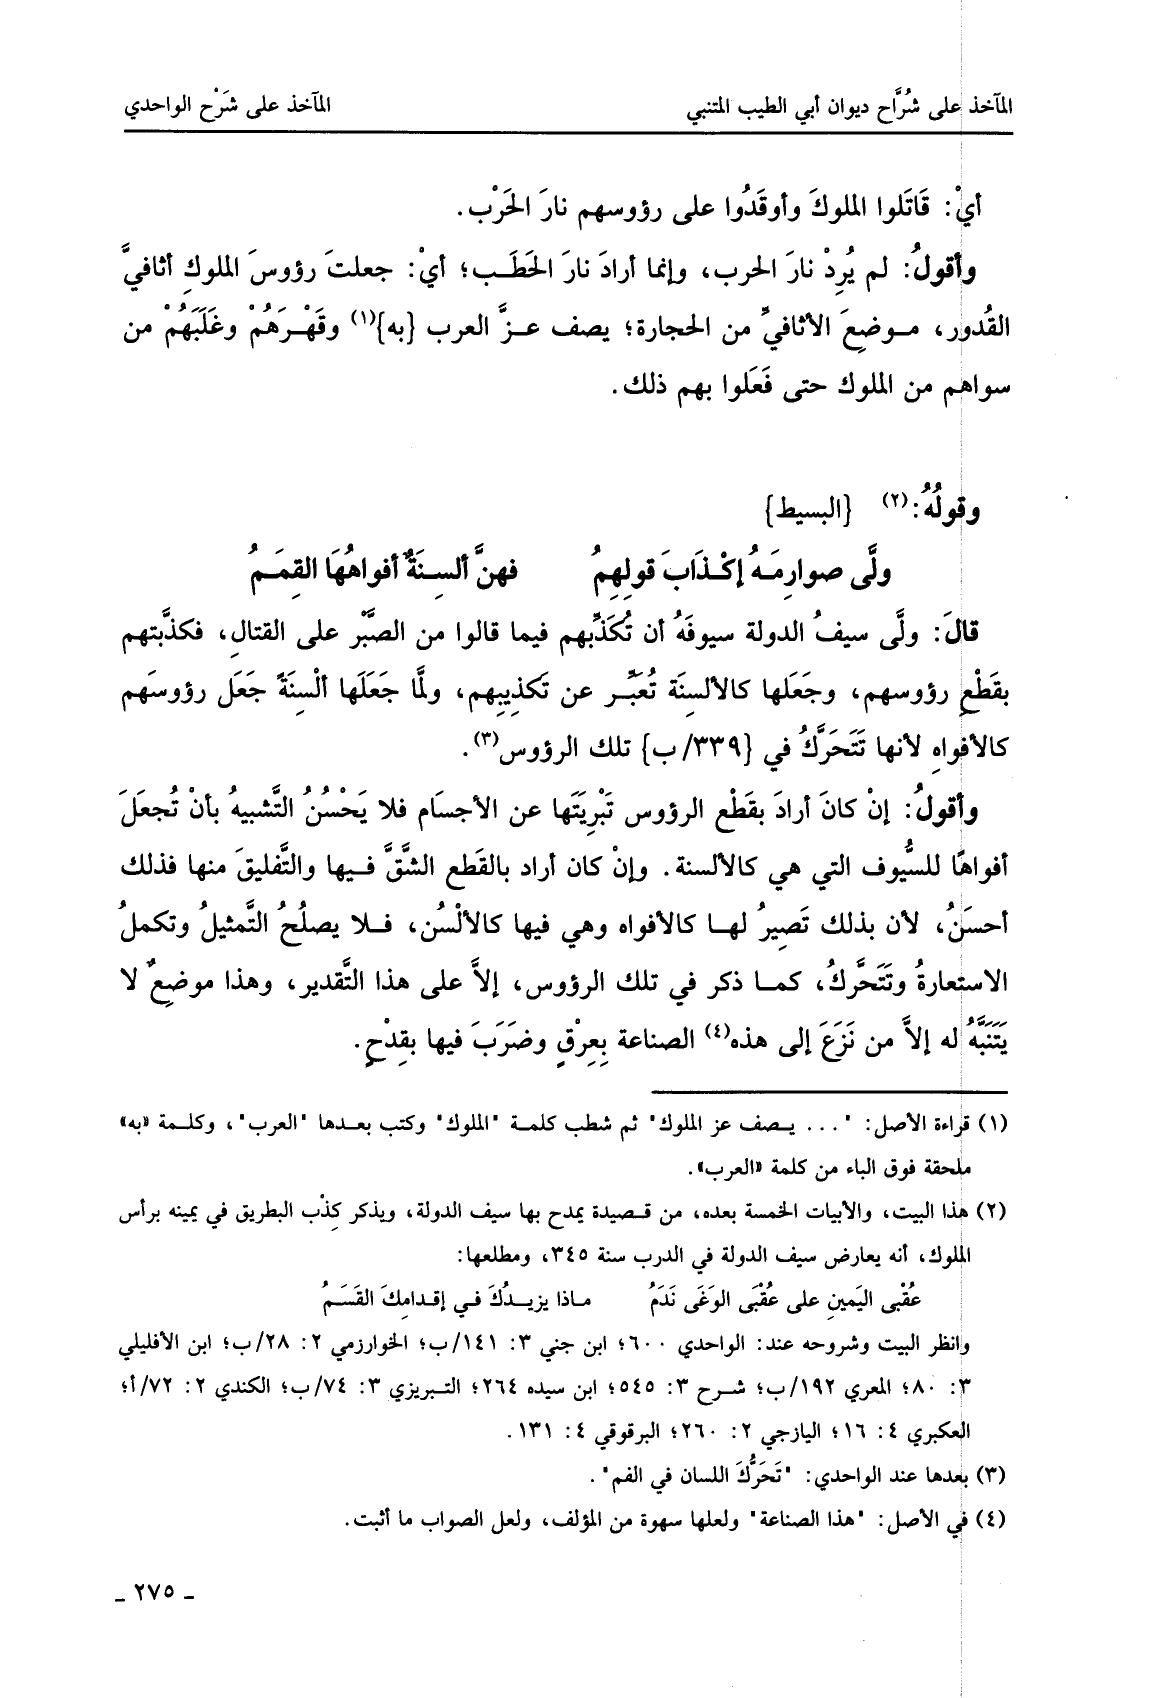 المآخذ على شُرَّاح ديوان أبي الطيب المتنبي المآخذ على شَرْح الواحدي
أيْ: قَاتَلوا الملوكَ وأوقَدُوا على رؤوسهم نارَ الحَرْب.
وأقولُ: لم يُرِدْ نارَ الحرب، وإنما أرادَ نارَ الحَطَب؛ أيْ: جعلتَ رؤوسَ الملوكِ أثافيَّ
القُدورِ، موضعَ الأثافيِّ من الحجارة؛ يصف عزَّ العرب {به}(١) وقَهْرَهُمْ وغَلَبَهُمْ من
سواهم من الملوك حتى فَعَلوا بهم ذلك.
وقولُهُ:(٢) {البسيط}
ولَّى صوارِمَهُ إكْذَابَ قولِهِمُ فهنَّ ألسِنَةٌ أفواهُهَا القِمَمُ
قالَ: ولَّى سيفُ الدولة سيوفَهُ أن تُكَذِّبهم فيما قالوا من الصَّبْر على القتالِ، فكذَّبتهم
بقَطْعِ رؤوسهم، وجَعَلها كالألسِنَة تُعَبِّر عن تكذِيبِهم، ولمَّا جَعَلَها ألْسِنَةً جَعَل رؤوسَهم
كالأفواهِ لأنها تَتَحَرَّكُ في {٣٣٩/ب} تلك الرؤوس(٣).
وأقولُ: إنْ كانَ أرادَ بقَطْع الرؤوس تَبْرِيَتَها عن الأجسَام فلا يَحْسُنُ التَّشبيهُ بأنْ تُجعَلَ
أفواهًا للسُّيوف التي هي كالألسنة. وإنْ كان أراد بالقَطع الشَّقَّ فيها والتَّفليقَ منها فذلك
أحسَنُ، لأن بذلك تَصِيرُ لها كالأفواه وهي فيها كالألْسُن، فلا يصلُحُ التَّمثيلُ وتكملُ
الاستعارةُ وتَتَحَرَّكُ، كما ذكر في تلك الرؤوس، إلاَّ على هذا التَّقدير، وهذا موضعٌ لا
يَتَنَبَّهُ له إلاَّ من نَزَعَ إلى هذه(٤) الصناعة بِعِرْقٍ وضَرَبَ فيها بقِدْحٍ.
(١) قراءة الأصل: "... يصف عز الملوك" ثم شطب كلمة "الملوك" وكتب بعدها "العرب"، وكلمة «به»
ملحقة فوق الباء من كلمة «العرب».
(٢) هذا البيت، والأبيات الخمسة بعده، من قصيدة يمدح بها سيف الدولة، ويذكر كذْب البطريق في يمينه برأس
الملوك، أنه يعارض سيف الدولة في الدرب سنة ٣٤٥، ومطلعها:
عُقْبى اليَمينِ على عُقْبَى الوَغَى نَدَمُ ماذا يزيدُكَ في إقدامِكَ القَسَمُ
وانظر البيت وشروحه عند: الواحدي ٦٠٠؛ ابن جني ٣: ١٤١/ب؛ الخوارزمي ٢: ٢٨/ب؛ ابن الأفليلي
٣: ٨٠؛ المعري ١٩٢/ب؛ شرح ٣: ٥٤٥؛ ابن سيده ٢٦٤؛ التبريزي ٣: ٧٤/ب؛ الكندي ٢: ٧٢/أ؛
العكبري ٤: ١٦؛ اليازجي ٢: ٢٦٠؛ البرقوقي ٤: ١٣١.
(٣) بعدها عند الواحدي: "تَحَرُّكَ اللسان في الفم".
(٤) في الأصل: "هذا الصناعة" ولعلها سهوة من المؤلف، ولعل الصواب ما أثبت.
ـ ٢٧٥ ـ